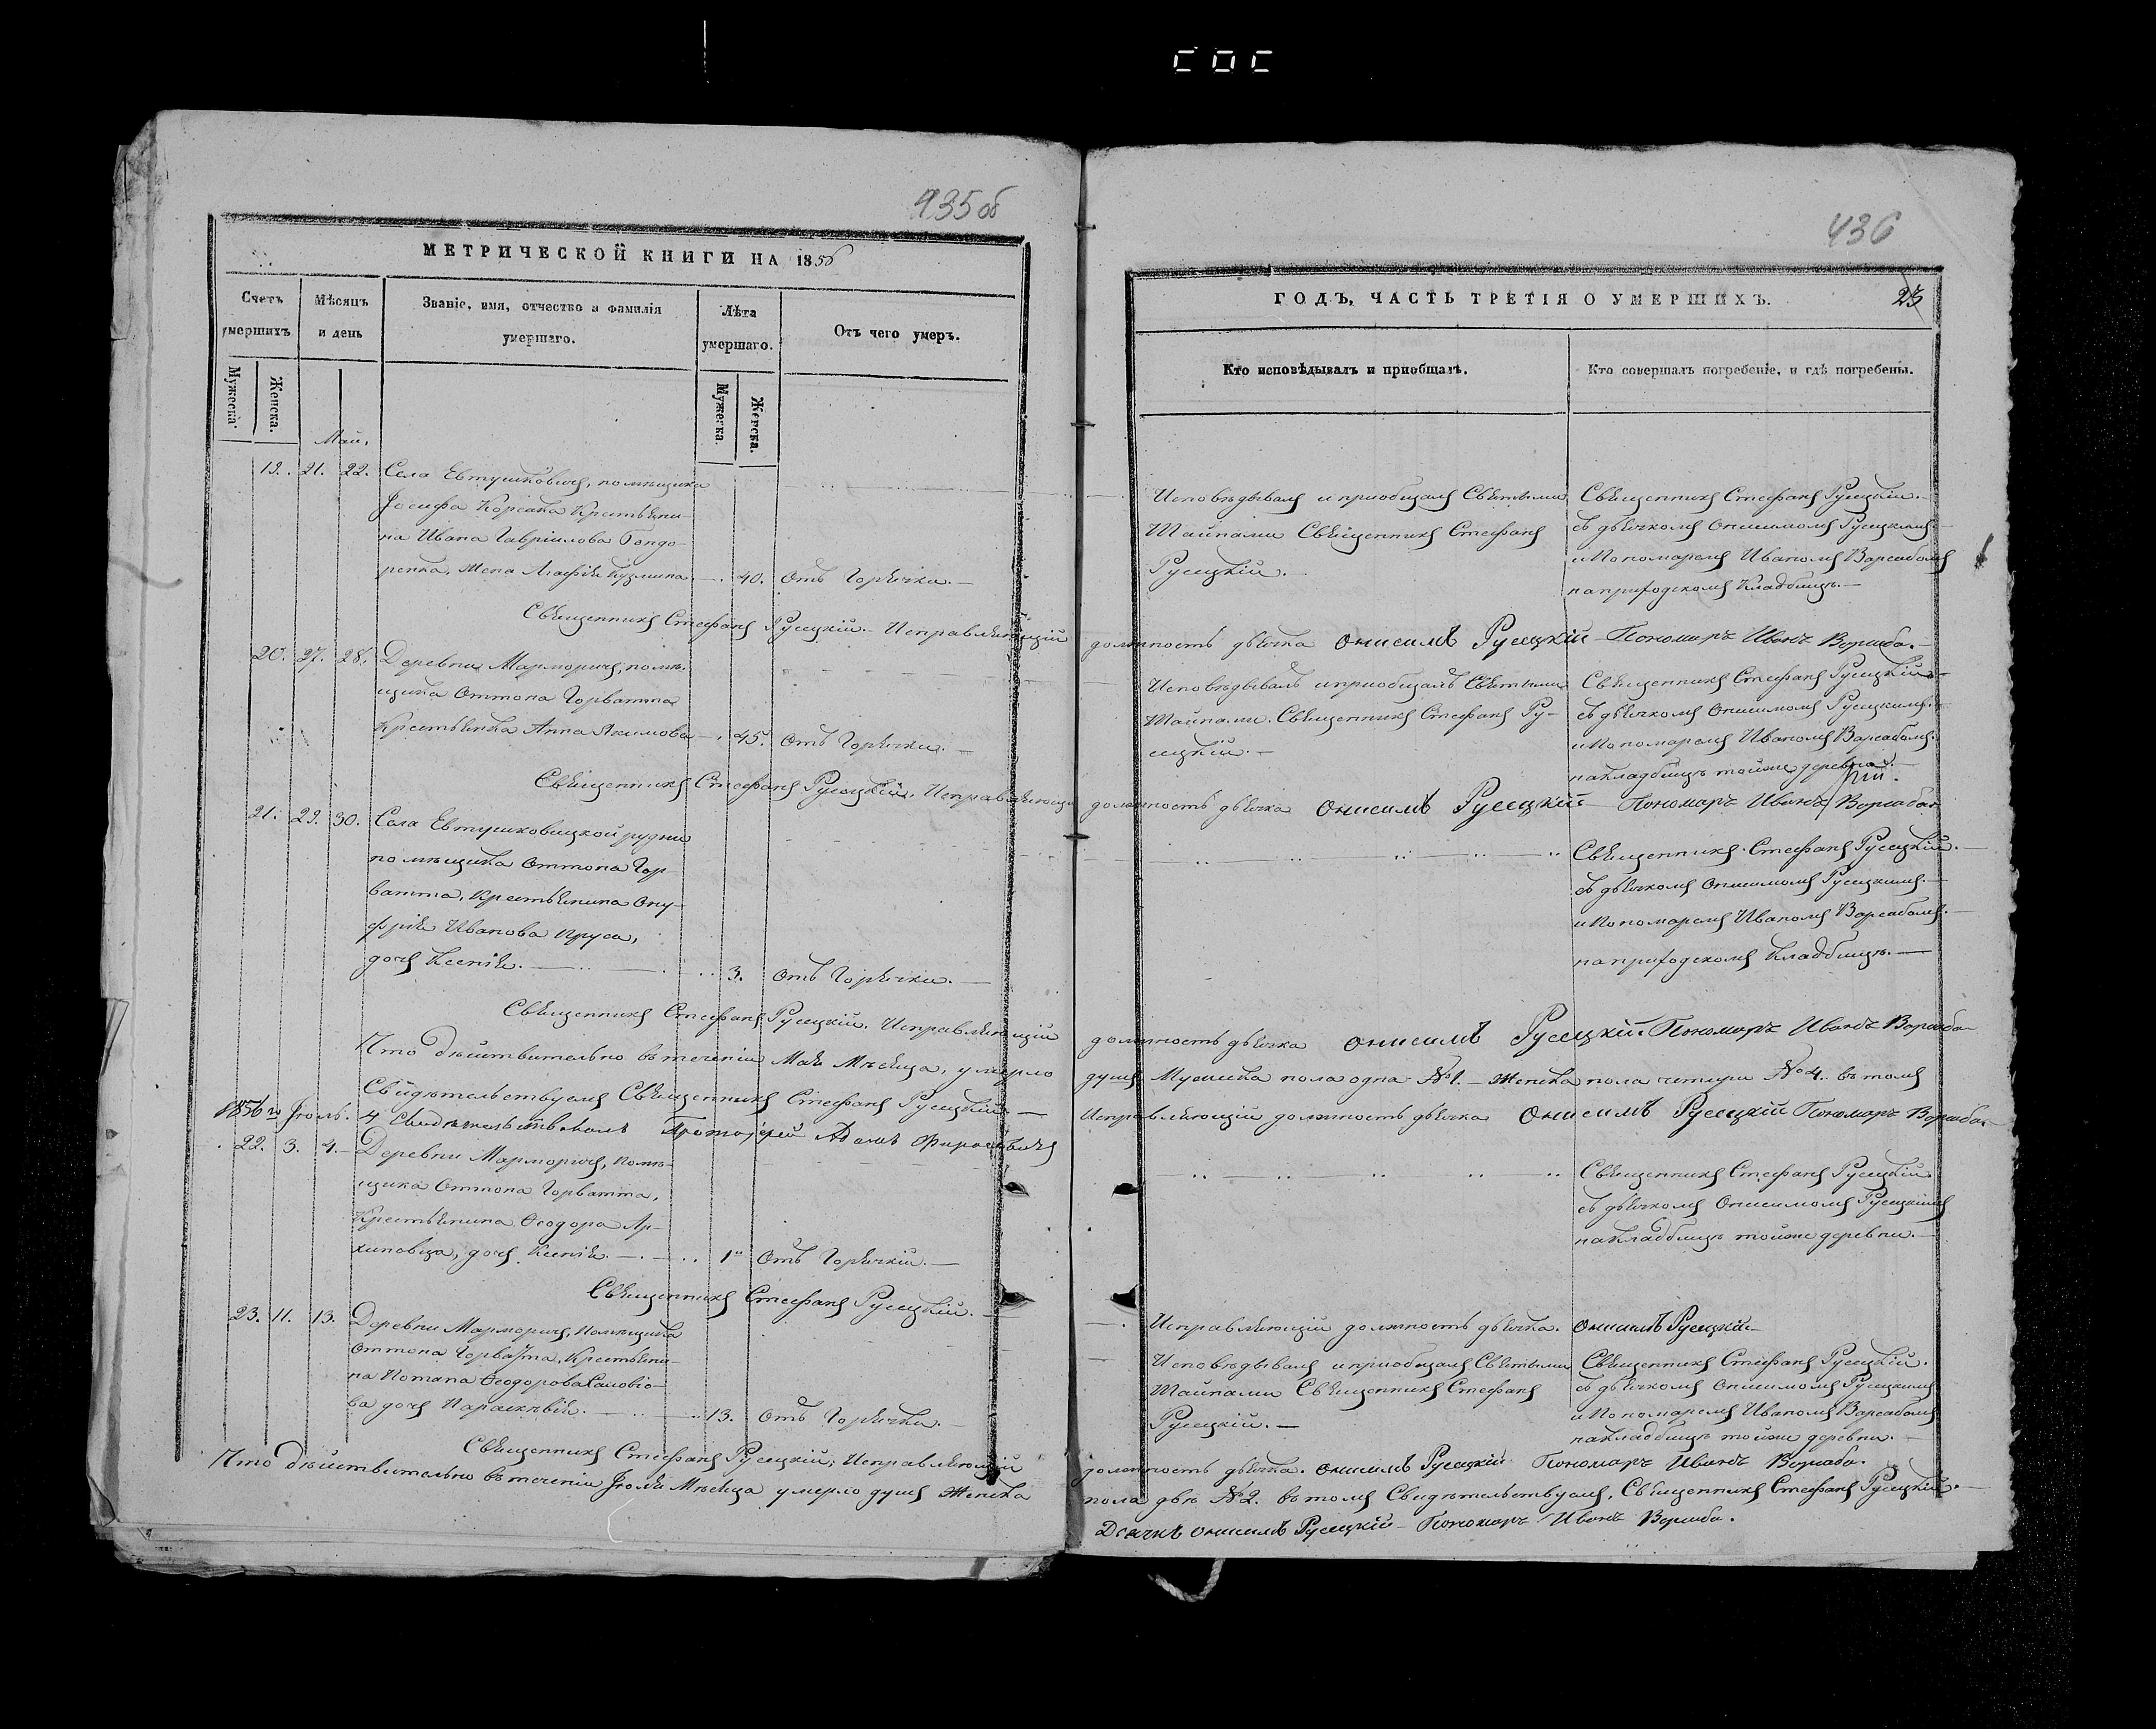 435 об
МЕТРИЧЕСКОЙ КНИГИ НА 1856
Счетъ умершихъ
Мѣсяцъ и день
Званіе, имя, отчество и фамилія умершаго.
Лѣта умершаго.
Отъ чего умеръ.
Мужеска.
Женска.
Мужеска.
Женска.
Май.
19. 21. 22. Села Евтушковичъ, помѣщика
Іосифа Корсака Крестьяни-
на Ивана Гавріилова Бондо-
ренка, жена Агафія Кузмина. — 40. Отъ Горячки. —
Священникъ Стефанъ Русецкій. — Исправляющій
20. 27. 28. Деревни Марморичъ, помѣ-
щика Оттона Горватта
Крестьянка Анна Якимова — 45. Отъ Горячки. —
Священникъ Стефанъ Русецкій. Исправляющій
21. 29. 30. Села Евтушковицкой рудни
помѣщика Оттона Гор-
ватта, Крестьянина Ону-
фрія Иванова Пруса,
дочь Ксенія. — 3. Отъ Горячки. —
Священникъ Стефанъ Русецкій. Исправляющій
Что дѣйствительно въ теченіи Мая Мѣсяца, умерло
Свидѣтельствуемъ Священникъ Стефанъ Русецкій. —
1856 го Іюль. 4 Свидѣтельствовалъ Протоіерей
22. 3. 4. — Деревни Марморичъ, помѣ-
щика Оттона Горватта,
Крестьянина Ѳеодора Ар-
хиповца, дочь Ксенія. — 1 Отъ Горячкій. —
Священникъ Стефанъ Русецкій. —
23. 11. 13. Деревни Марморичъ, Помѣщика
Оттона Горватта, Крестьяни-
на Потапа Ѳеодорова
ва дочь Параскевія. — 13. Отъ Горячки. —
Священникъ Стефанъ Русецкій, Исправляющій
Что дѣйствительно въ теченіи Іюля Мѣсяца умерло душъ женска
436
ГОДЪ, ЧАСТЬ ТРЕТІЯ О УМЕРШИХЪ.
23
Кто исповѣдывалъ и приобщалъ.
Кто совершалъ погребеніе, и гдѣ погребены.
Исповѣдывалъ и приобщалъ Святыми
Тайнами Священникъ Стефанъ
Русецкій. —
Священникъ Стефанъ Русецкій. —
съ дьячкомъ Онисимомъ Русецкимъ. —
и Пономаремъ Иваномъ Варсабомъ
на приходскомъ Кладбищѣ. —
должность дьячка Онисимъ Русецкій — Пономарь Иванъ Ворсаба. —
Исповѣдывалъ и приобщалъ Святыми
Тайнами. Священникъ Стефанъ Ру-
сецкій. —
Священникъ Стефанъ Русецкій —
съ дьячкомъ Онисимомъ Русецкимъ.
и Пономаремъ Иваномъ Варсабомъ.
на кладбищѣ тойже деревни. —
должность дьячка Онисимъ Русецкій — Пономарь Иванъ Ворсаба
Священникъ Стефанъ Русецкій. —
съ дьячкомъ Онисимомъ Русецкимъ. —
и Пономаремъ Иваномъ Варсабомъ. —
на приходскомъ Кладбищѣ. —
должность дьячка Онисимъ Русецкій Пономарь Иванъ Ворсаба
душъ Мужеска пола одна № 1. — женска пола четыри № 4. въ томъ
Исправляющій должность дьячка Онисимъ Русецкій Пономарь Ворсаба —
Священникъ Стефанъ Русецкій
съ дьячкомъ Онисимомъ Русецкимъ
на кладбищѣ тойже деревни. —
Исправляющій должность дьячка. Онисимъ Русецкій —
Исповѣдывалъ и приобщалъ Святыми
Тайнами Священникъ Стефанъ
Русецкій. —
Священникъ Стефанъ Русецкій.
съ дьячкомъ Онисимомъ Русецкимъ
и Пономаремъ Иваномъ Варсабомъ
на кладбищѣ тойже деревни. —
должность дьячка. Онисимъ Русецкій Пономарь Иванъ Ворсаба.
пола двѣ № 2. въ томъ Свидѣтельствуемъ, Священникъ Стефанъ Русецкій. —
Дьячкъ Онисимъ Русецкій — Пономарь Иванъ Ворсаба.